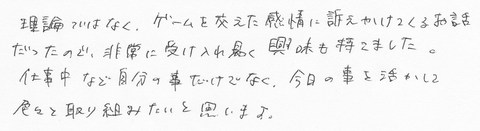 理論ではなく、ゲームを交えた感情に訴えかけてくるお話
だったので、非常に受け入れ易く興味も持てました。
仕事中など自分の事だけでなく、今日の事を活かして
色々と取り組みたいと思います。